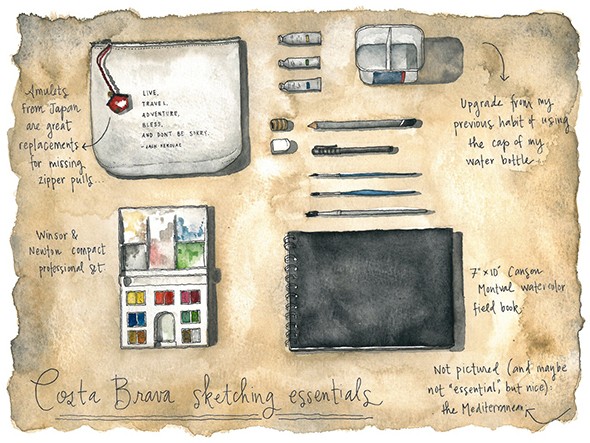 Amulets
from Japan
are great
replacements
for missing
zipper pulls...
LIVE,
TRAVEL,
ADVENTURE,
BLESS,
AND DON'T BE SORRY.
-JACK KEROUAC
Upgrade from my
previous habit of using
the cap of my
water bottle...
Winsor &
Newton compact
professional set
7"x10" Canson
Montval watercolor
field book
Not pictured (and maybe
not "essential", but nice):
the Mediterranean
Costa Brava sketching essentials